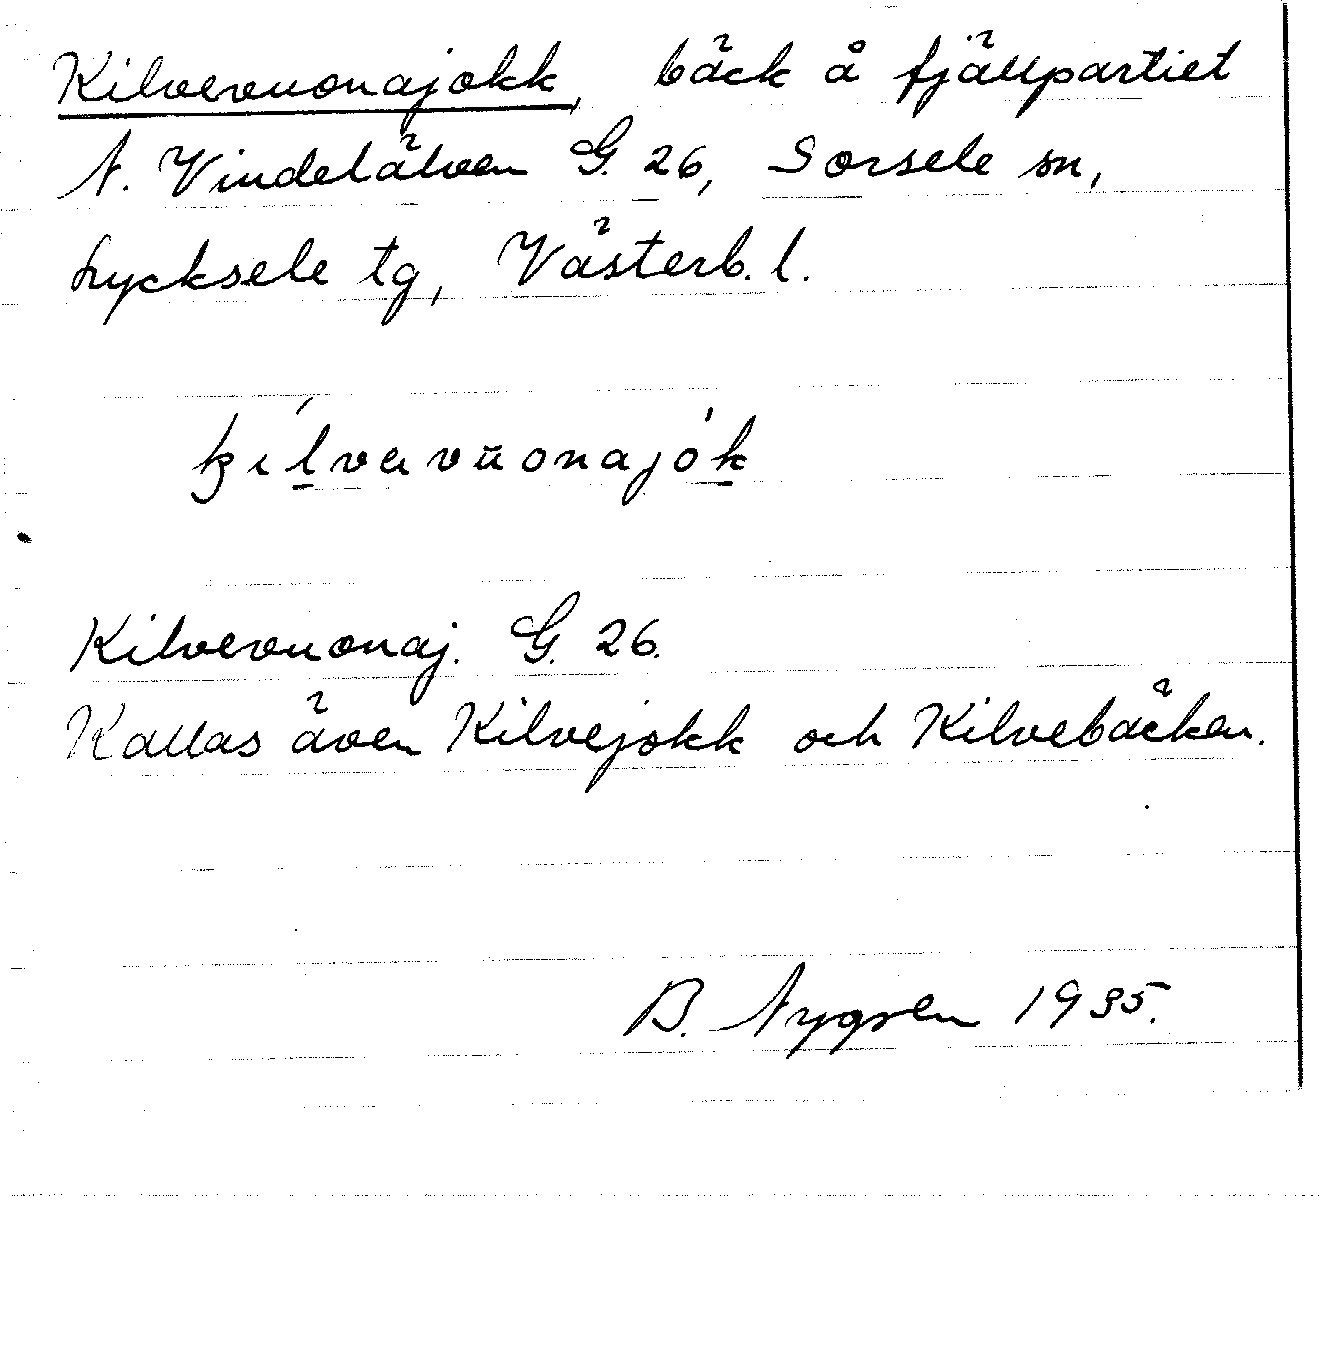 Kilvevuonajokk, bäck å fjällpartiet
N. Vindelälven G. 26, Sorsele sn,
Lycksele tg, Västerb. l.
kílvavūonajók
Kilvevuonaj. G. 26.
Kallas även Kilvejokk och Kilvebäcken.
B. Nygren 1935.